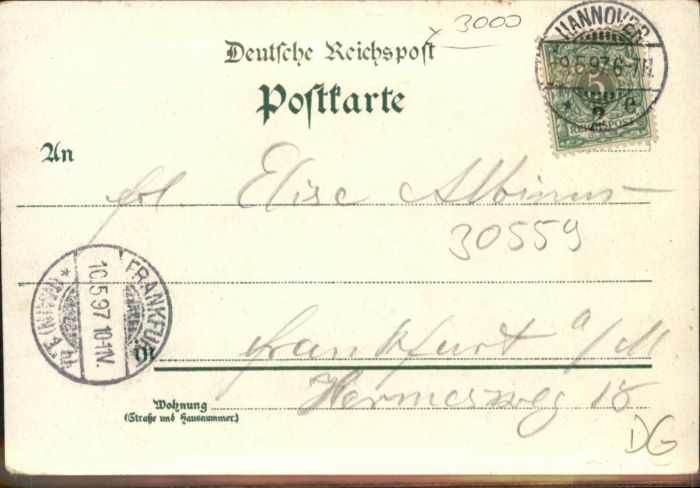 x 3000
Deutsche Reichspost
Postkarte
HANNOVER
9.5.97.6-7N.
* 2 c
5
REICHSPOST
An
frl. Elise Albinus
30559
FRANKFURT
(MAIN)
10.5.97 10-11V.
*
in
Frankfurt a/M
Wohnung
(Straße und Hausnummer)
Hermesweg 15
DG